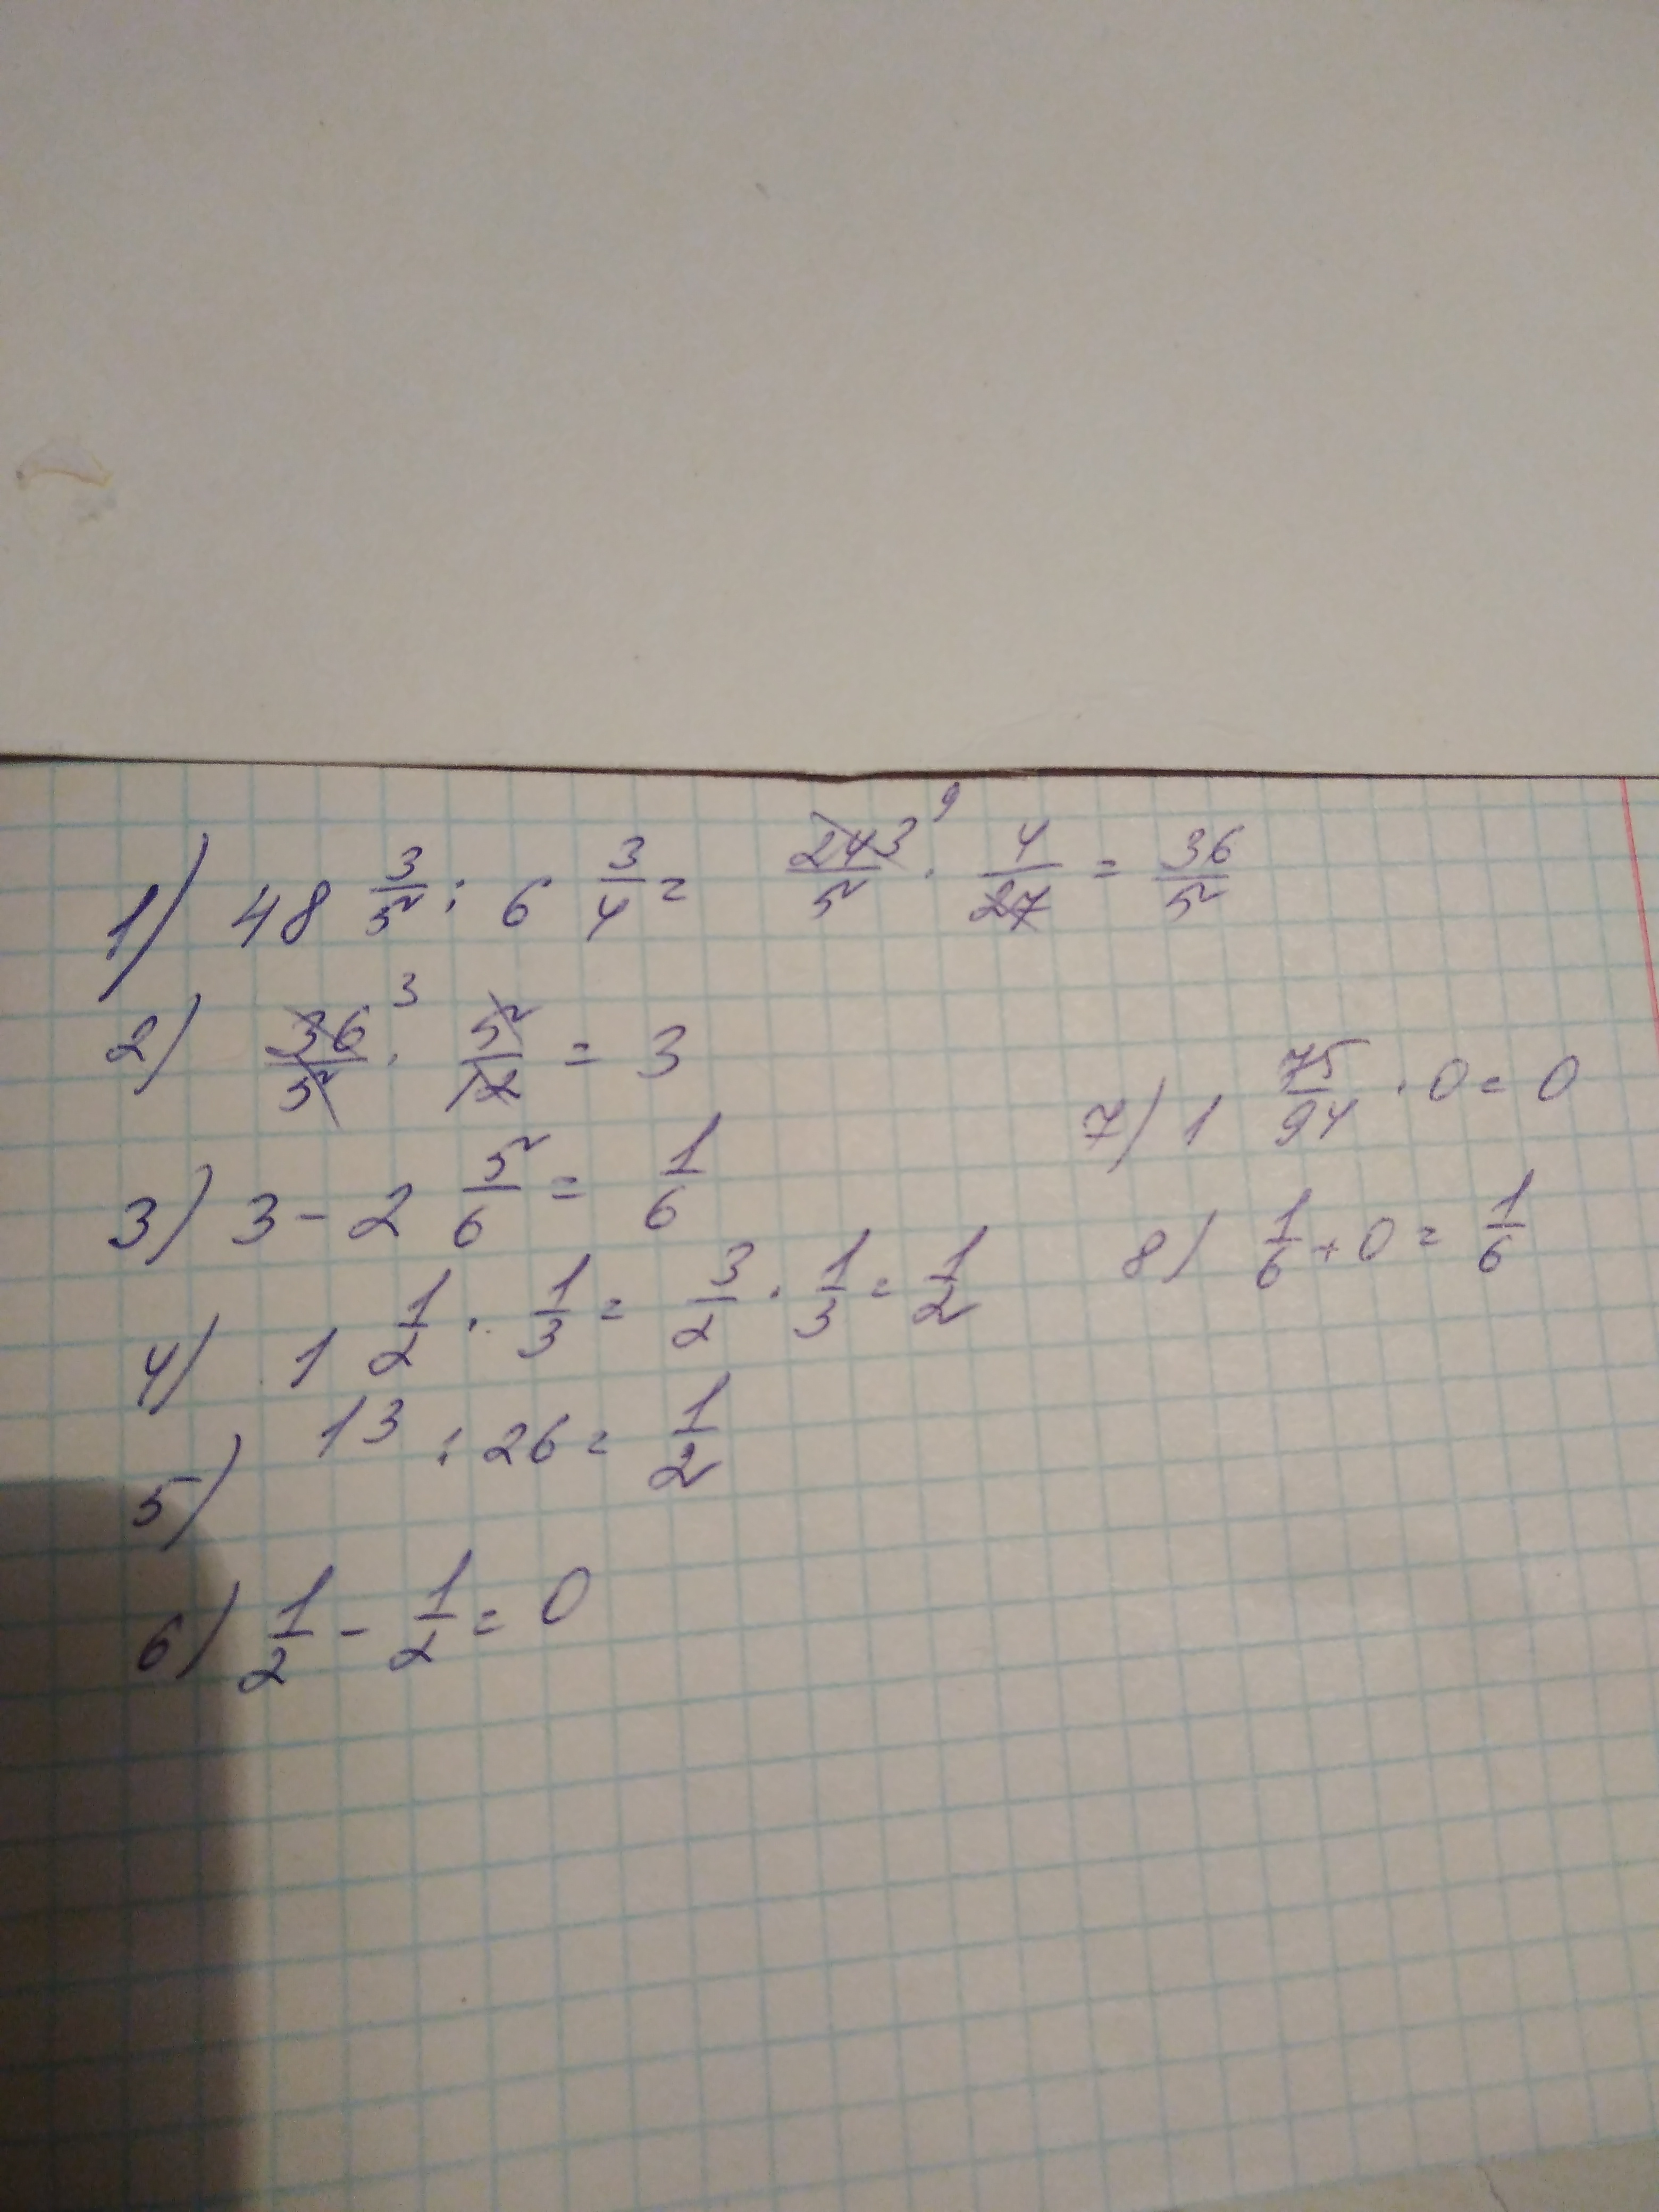 1) 48 3/5 : 6 3/4 = 243/5 ⁹ · 4/27 = 36/5
2) 36/5 ³ · 5/12 = 3
3) 3 - 2 5/6 = 1/6
4) 1 1/2 · 1/3 = 3/2 · 1/3 = 1/2
5) 13 : 26 = 1/2
6) 1/2 - 1/2 = 0
7) 1 75/94 · 0 = 0
8) 1/6 + 0 = 1/6